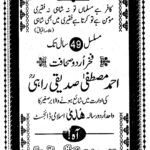 کافر ہے مسلماں تو نہ شاہی نہ فقیری
مومن ہے تو کرتا ہے فقیری میں بھی شاہی
مسلسل 49 سال تک
فخر اردو صحافت
احمد مصطفیٰ صدیقی راہی
کی ادارت میں شائع ہونے والا برصغیر کا
واحد اردو رسالہ ھُدیٰ اسلامی ڈائجسٹ